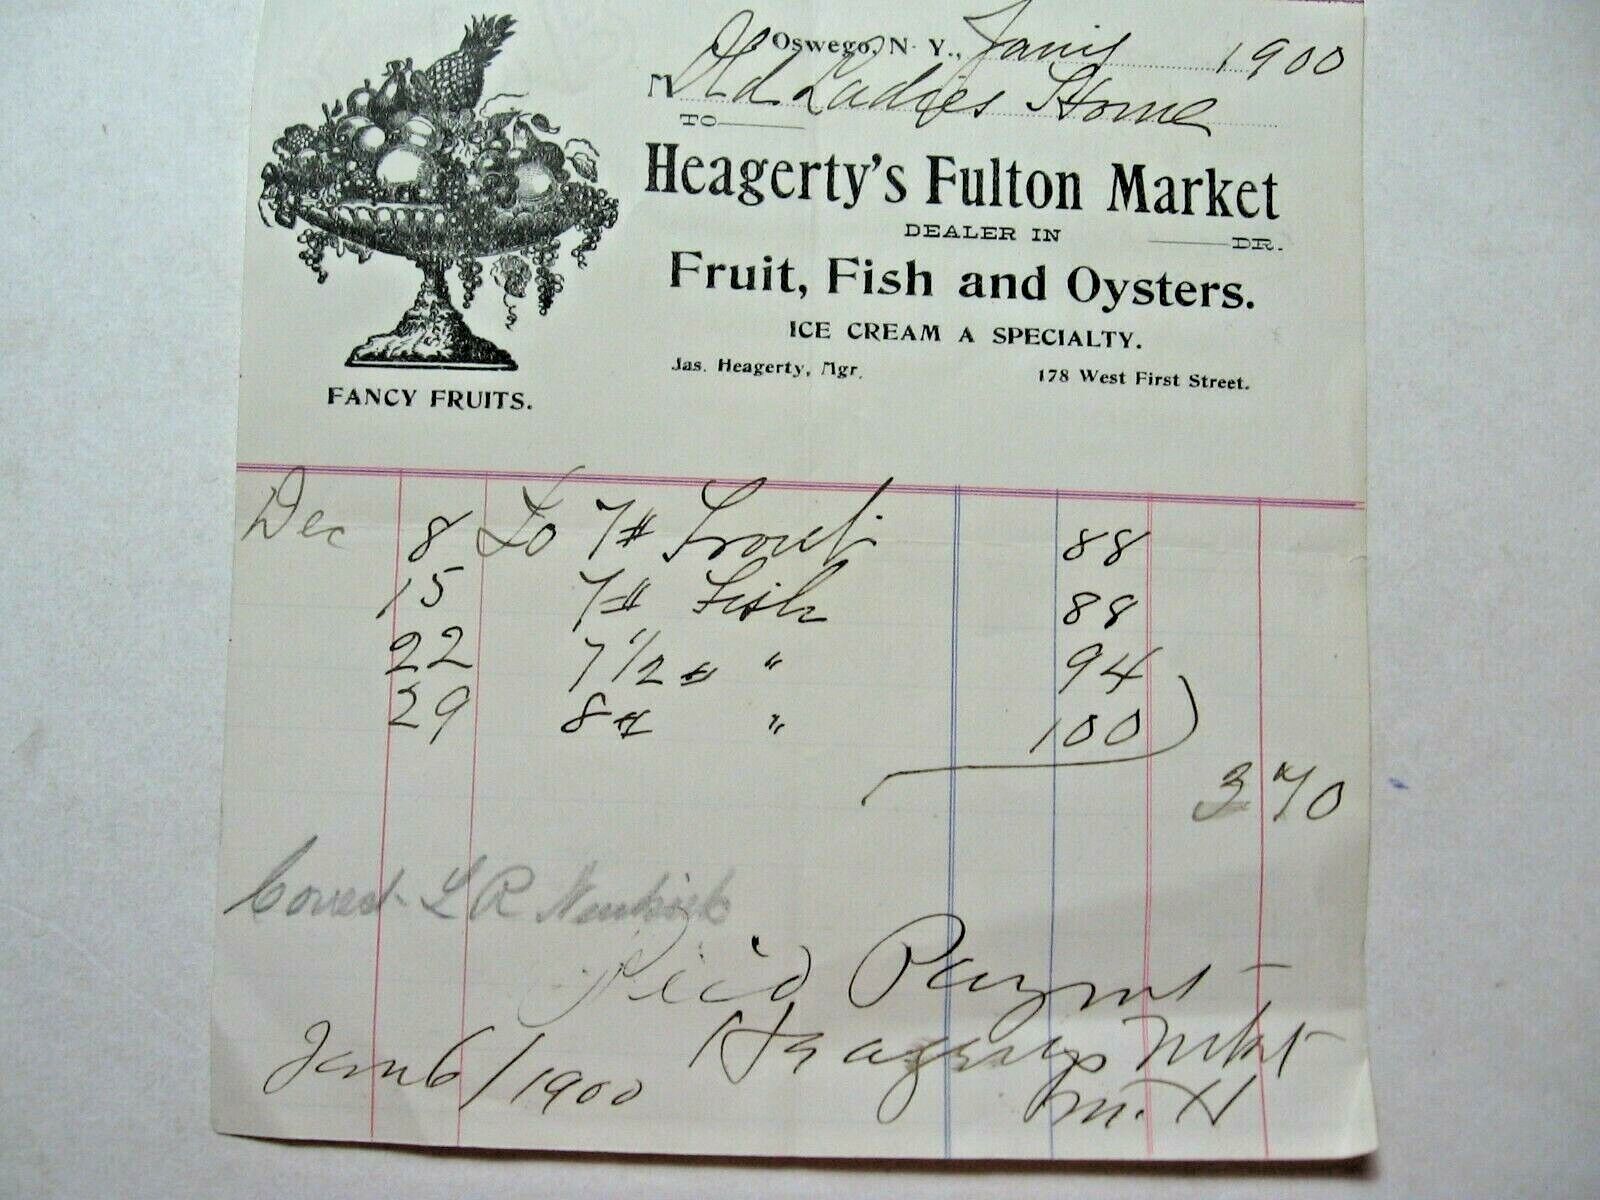 Oswego, N. Y., 1900
M Old Ladies Home
TO
Heagerty's Fulton Market
DEALER IN DR.
Fruit, Fish and Oysters.
ICE CREAM A SPECIALTY.
Jas. Heagerty, Mgr. 178 West First Street.
FANCY FRUITS.
Dec 8 To 7# Trout 88
15 7# Fish 88
22 7 1/2 # " 94
29 8# " 100
3 70
Correct L R
Rec'd Paymt
Heagertys Mkt
Jan 6/1900
M. H